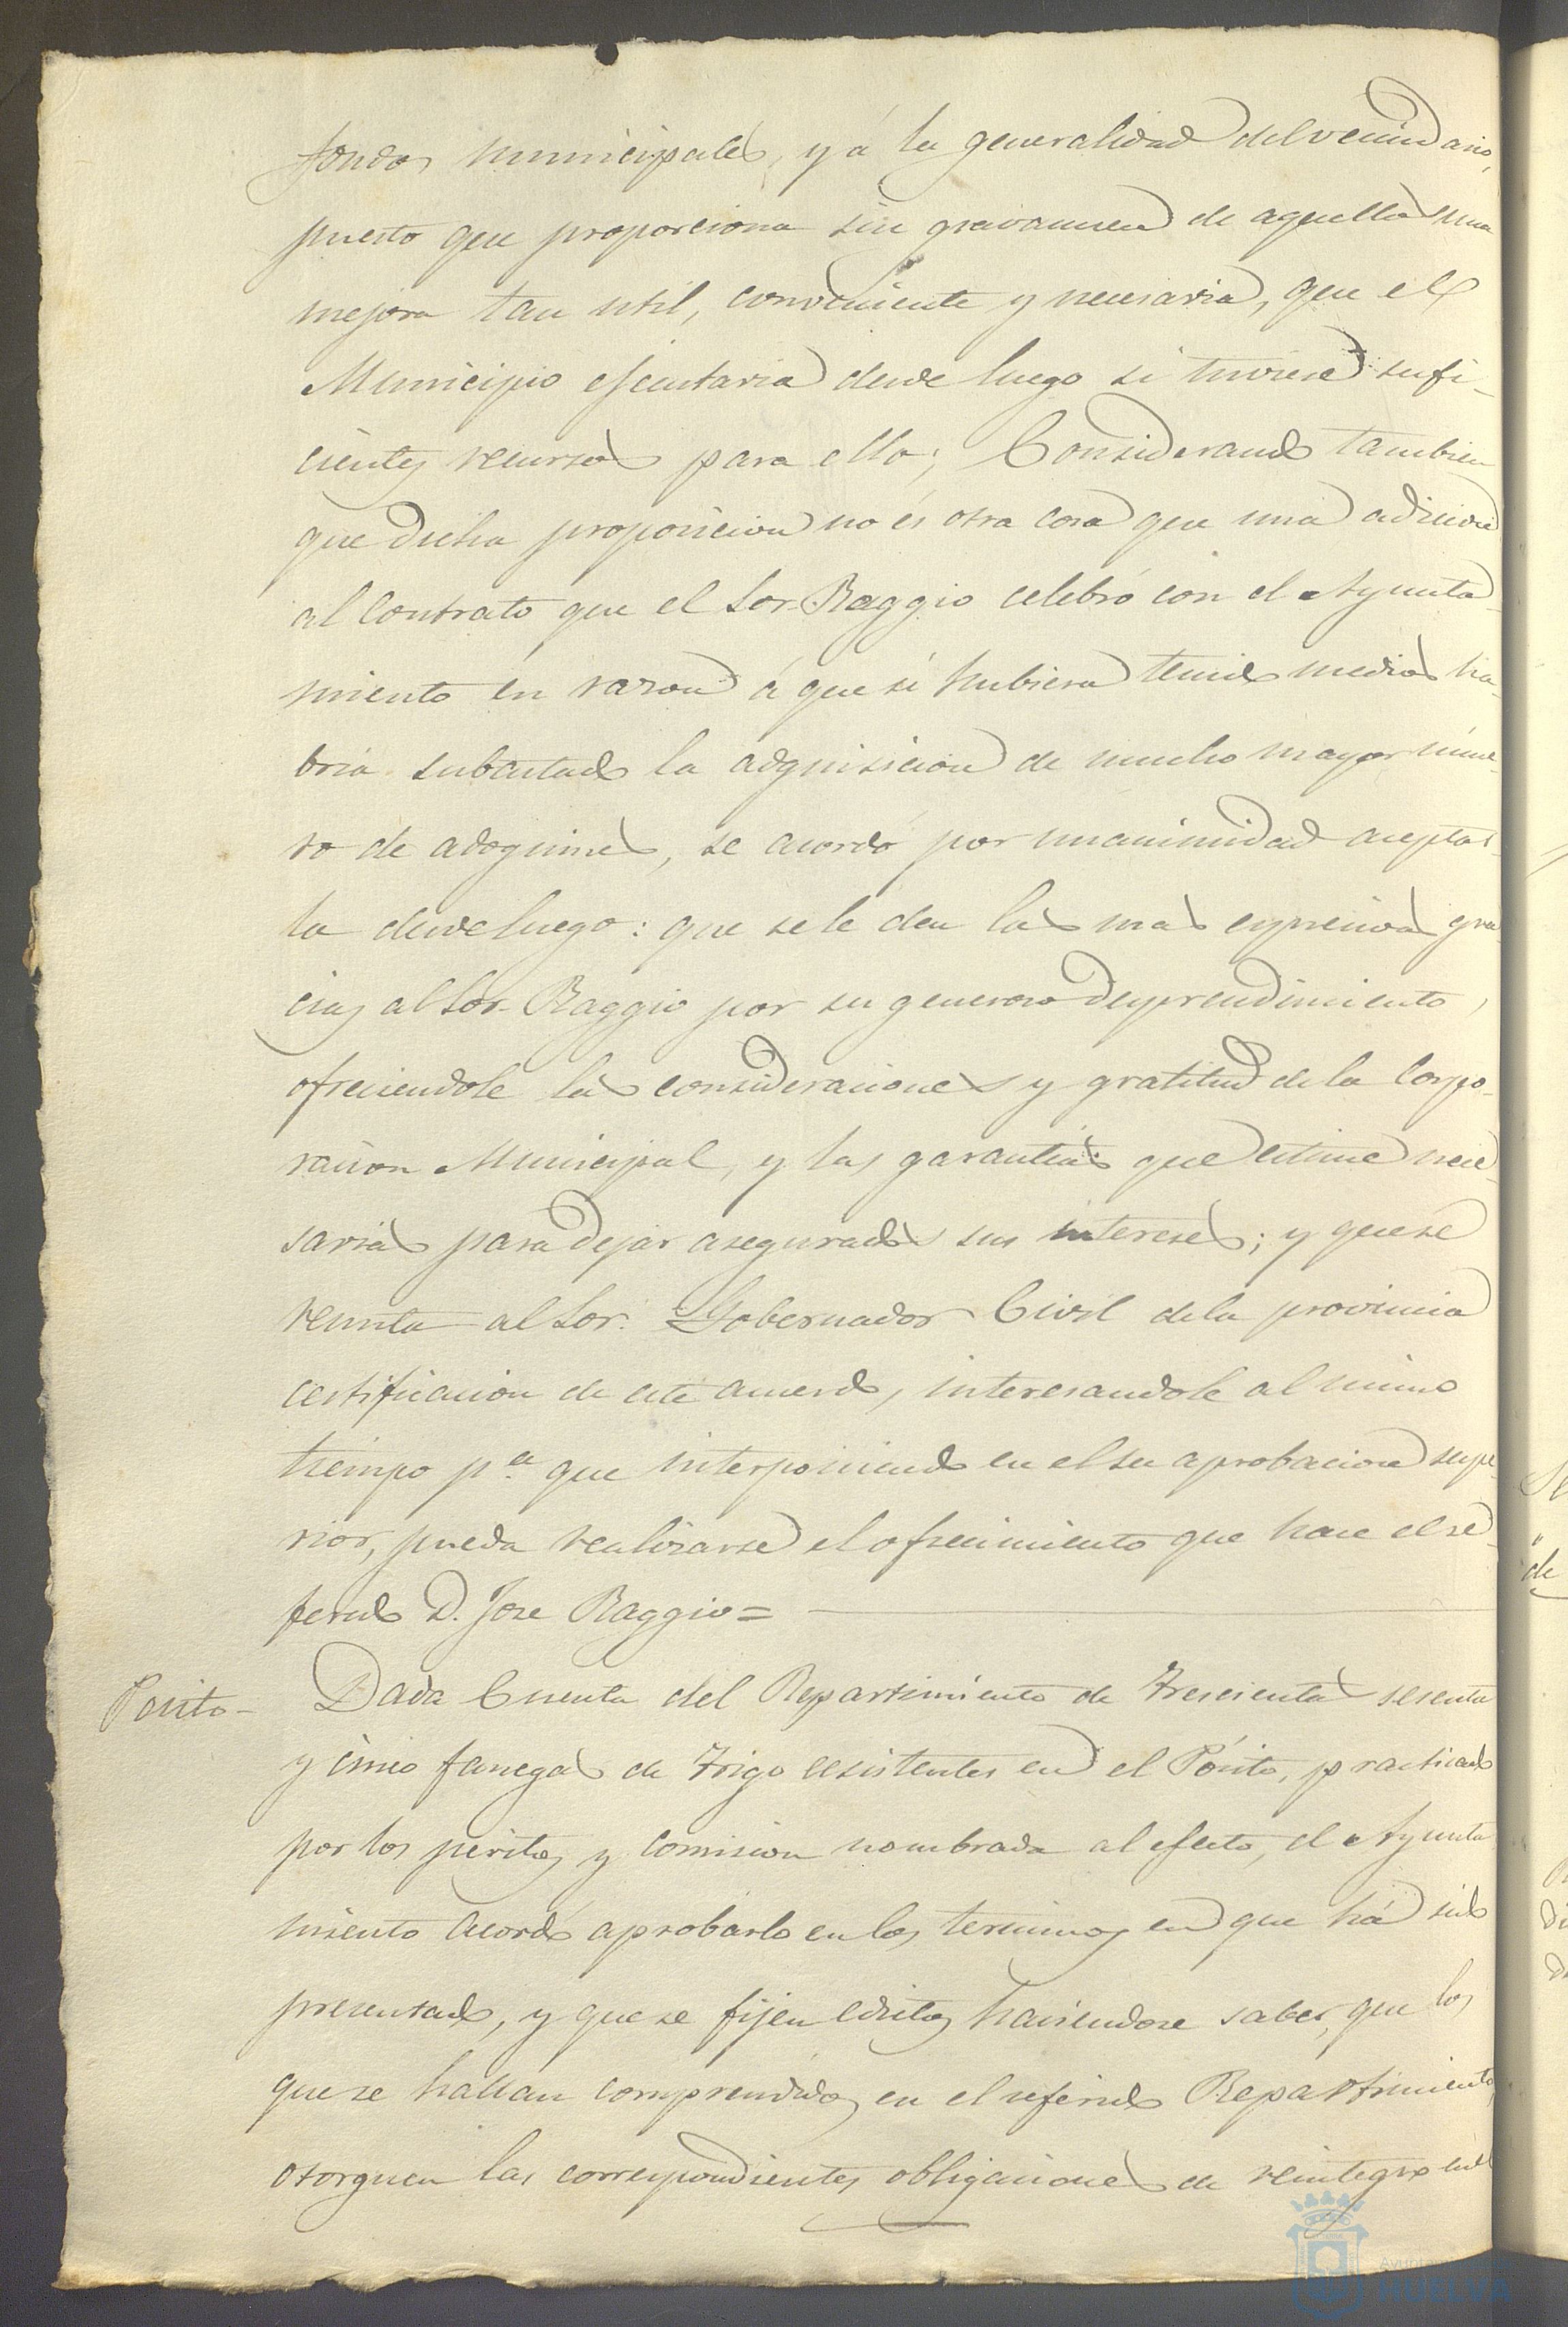 fondos municipales, y á la generalidad del vecindario,
puesto que proporciona sin gravamen de aquellos una
mejora tan util, conveniente y necesaria, que el
Municipio ejecutaria desde luego si tuviese sufi-
cientes recursos para ello; Considerando tambien
que dicha proposicion no es otra cosa que una adicion
al Contrato que el Sor. Raggio celebró con el Ayunta-
miento en razon á que si hubiera tenido medios ha-
bria subastado la adquisicion de mucho mayor núme-
ro de adoquines, se acordó por unanimidad aceptar-
la desde luego: que se le den las mas espresivas gra-
cias al Sor. Raggio por su generoso desprendimiento,
ofreciendole las consideraciones y gratitud de la Corpo-
racion Municipal, y las garantias que estime nece-
sarias para dejar asegurados sus intereses; y que se
remita al Sor. Gobernador Civil de la provincia
certificacion de este acuerdo, interesandole al mismo
tiempo p.ª que interponiendo en el su aprobacion supe-
rior, pueda realizarse el ofrecimiento que hace el re-
ferido D. Jose Raggio=
Posito- Dada Cuenta del Repartimiento de Trescientas sesenta
y cinco fanegas de Trigo ecsistentes en el Pósito, practicado
por los peritos y Comision nombrada al efecto, el Ayunta
miento Acordó aprobarlo en los terminos en que há sido
presentado, y que se fijen edictos haciendose saber, que los
que se hallan comprendidos en el referido Repartimiento
otorguen las correspondientes obligaciones de reintegro
Ayunt
HUELVA